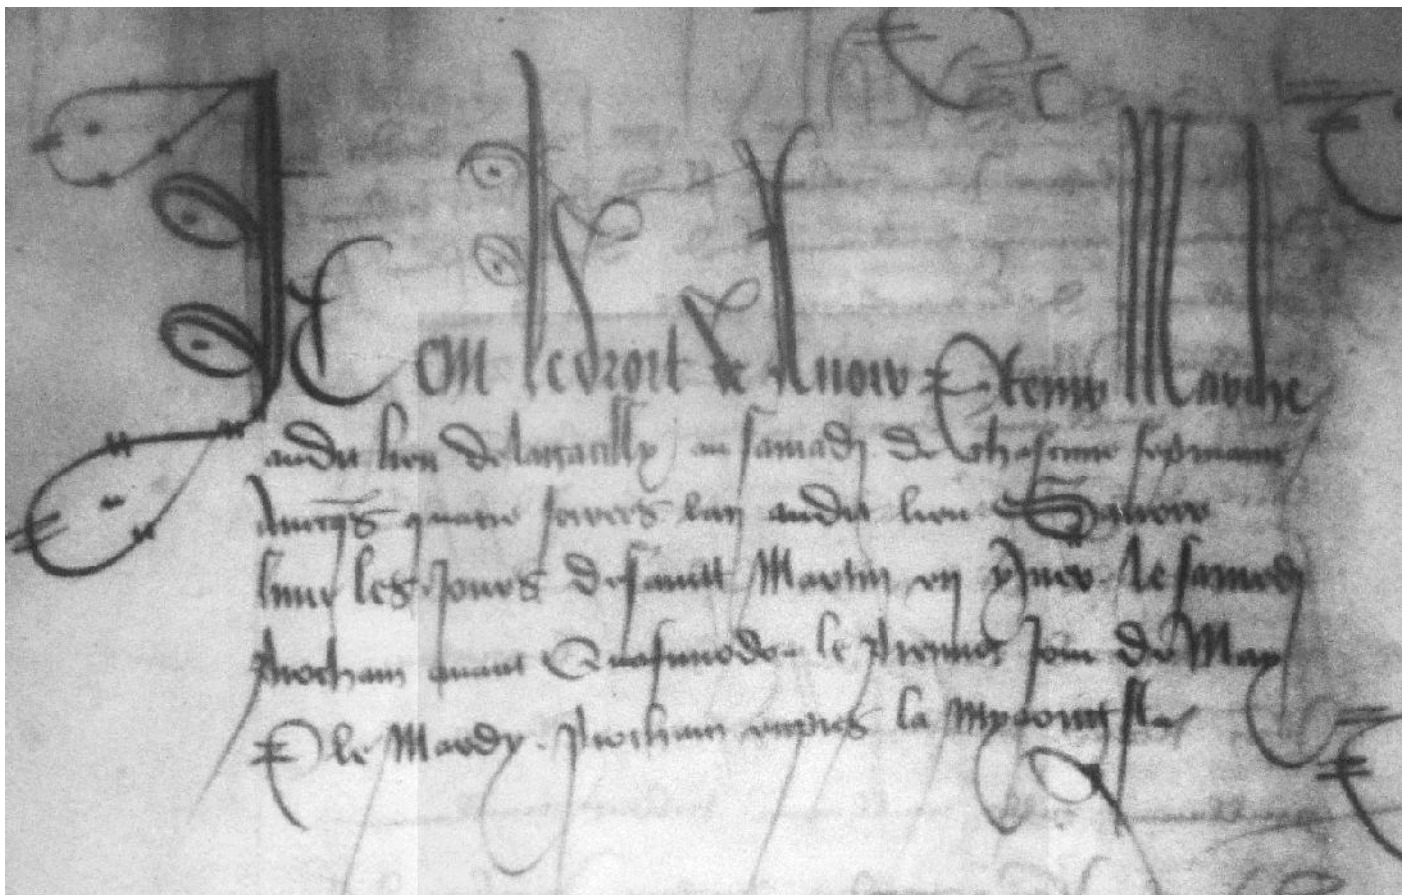 Item le droit de avoir et tenir Marche
audit lieu de lagacilly au samadi de chascune sepmaine
Avecqs quatre foires lan audit lieu Savoir
sunt les Jours de sainct Martin en yver le samedi
prochain avant Quasimodo le premier Jour de May
Et le Mardy prochain empres la Myaoust